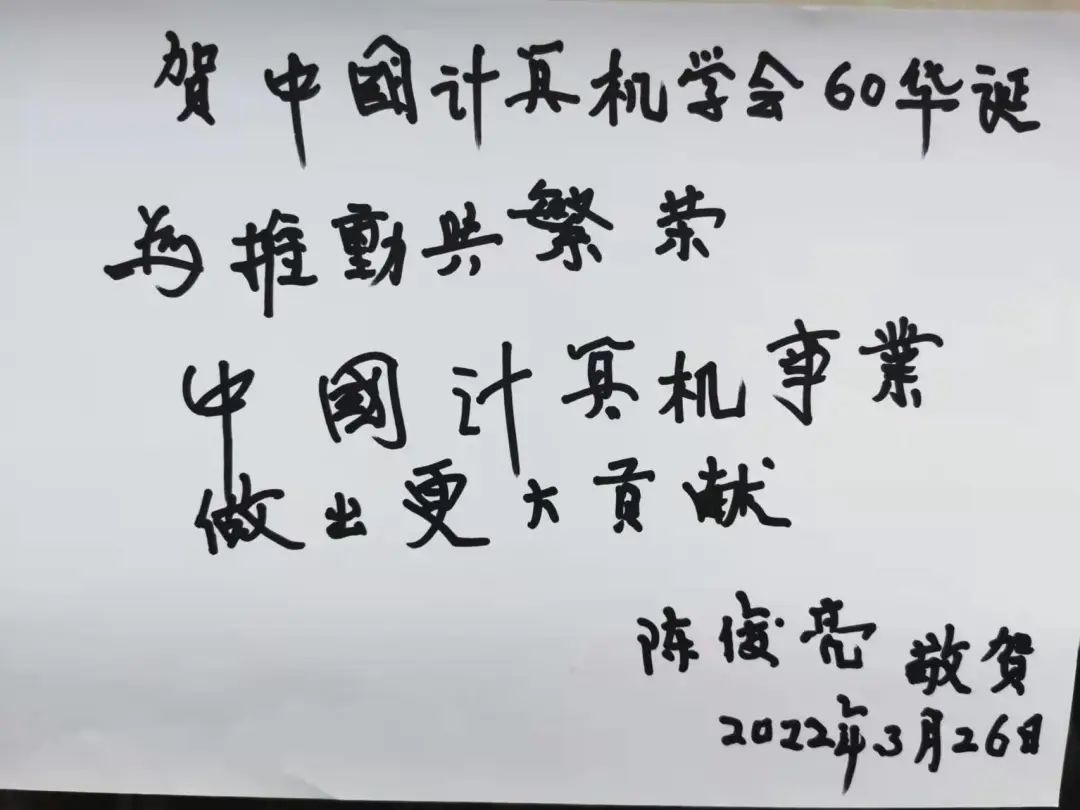 賀中國计算机学会60华诞
為推動共繁荣
中國计算机事業
做出更大贡献
陈俊亮 敬賀
2022年3月26日